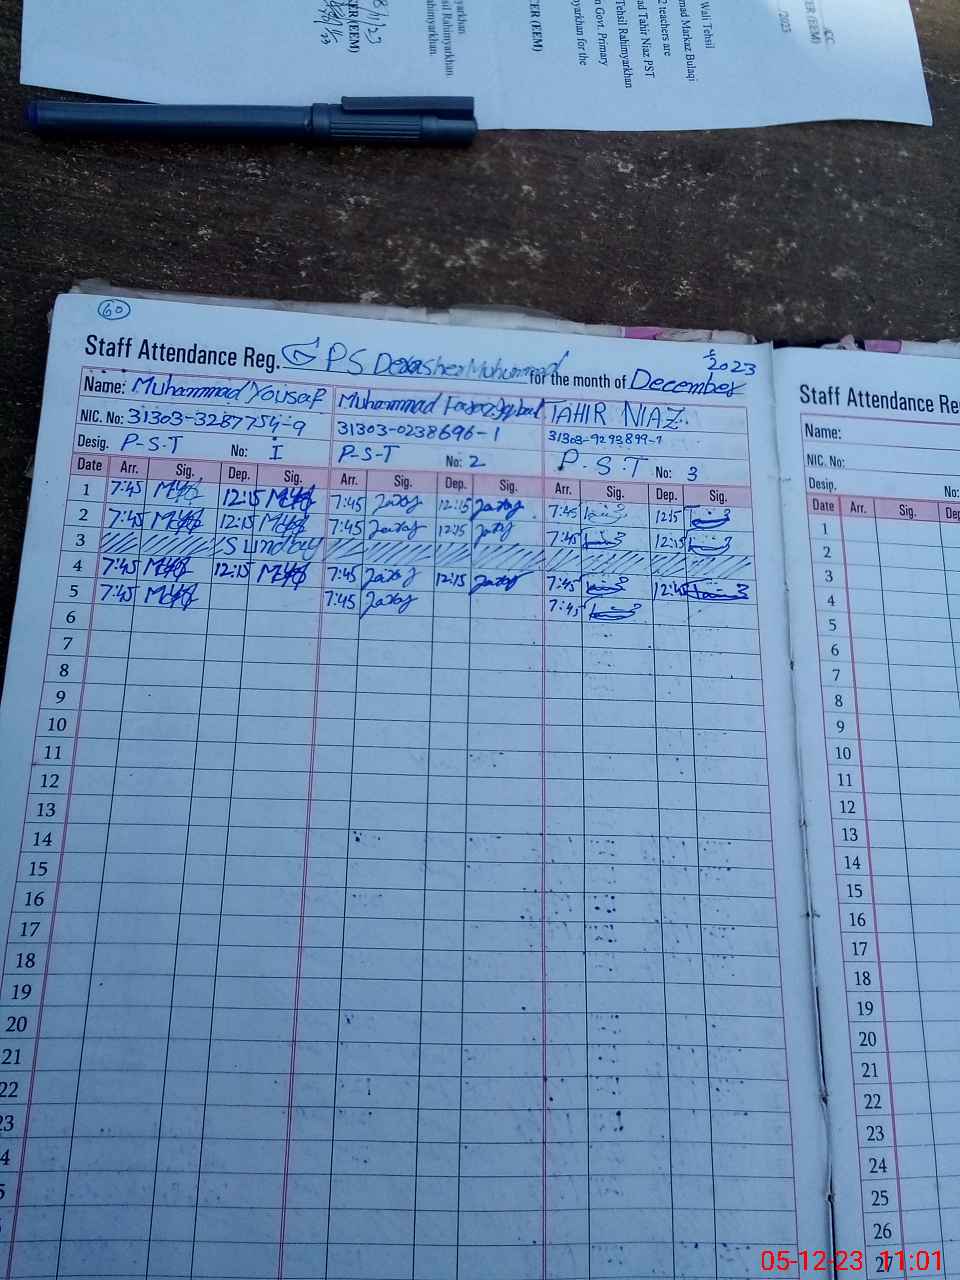 8/11/23
CER (EEM)
Wali Tehsil
mad Markaz Bulaqi
2 teachers are
ad Tahir Niaz PST
Tehsil Rahimyarkhan
n Govt. Primary
yarkhan for the
ER (EEM)
yarkhan
sil Rahimyarkhan.
ahimyarkhan.
CC
ER (EEM)
2023
60
Staff Attendance Reg. GPS for the month of December 2023
Name: Muhammad Yousaf Muhammad TAHIR NIAZ
NIC. No: 31303-3287754-9 31303-0238696-1
Desig. P-S-T No: I P-S-T No: 2 P.S.T No: 3
Date Arr. Sig. Dep. Sig. Arr. Sig. Dep. Sig. Arr. Sig. Dep. Sig.
1 7:45 12:15 7:45 12:15 7:45 12:15
2 7:45 12:15 7:45 12:15 7:45 12:15
3 Sunday
4 7:45 12:15 7:45 12:15 7:45 12:45
5 7:45 7:45 7:45
6
7
8
9
10
11
12
13
14
15
16
17
18
19
20
21
22
23
4
5
Staff Attendance Re
Name:
NIC. No:
Desig. No:
Date Arr. Sig. Dep
1
2
3
4
5
6
7
8
9
10
11
12
13
14
15
16
17
18
19
20
21
22
23
24
25
26
27
05-12-23 11:01